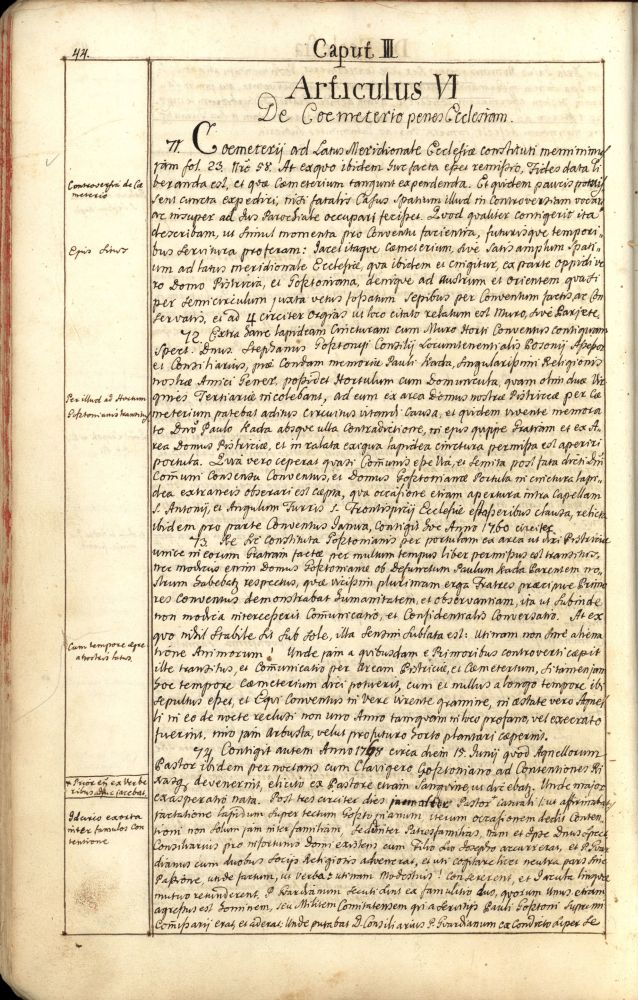 44.
Caput III
Articulus VI
De Coemeterio penes Ecclesiam.
71. Coemeterij ad Latus Meridionale Ecclesiæ constituti meminimus
jam fol. 23. Nro 58. At ex quo ibidem huc facta esset remissio, Fides data li
beranda est, et quæ Cæmeterium tangunt expendenda. Et quidem paucis
sent cuncta expediri, nisi fatalis Casus spatium illud in controversiam
ac insuper ad Jus Parochiale occupari fecisset. Quod qualiter contigerit ita
describam, ut simul momenta pro Conventu facientia, futurisque tempori-
bus servitura proferam: Jacet itaque Cæmeterium, sive satis amplum Spati-
um ad latus meridionale Ecclesiæ, qua ibidem et cingitur, ex parte oppidi ve
ro Domo Pistricia, et Gosztonyiana, denique ad Austrum et orientem quasi
per Semicirculum juxta vetus fossatum Sepibus per Conventum factis, ac Con
servatis, et ad 4 circiter Orgias ut loco citato relatum est Muro, sive Pariete.
72. Extra hanc lapideam Cincturam cum Muro Horti Conventus contiguam
Spect. Dnus Stephanus Gosztonyi Consilij Locumtenentialis Posonij Assessor
et Consiliarius, præ Condam memoriæ Pauli Kada, singularissimi Religionis
nostræ Amici Gener, possidet Hortulum cum Domuncula, quam olim duæ Vir
gines Tertiariæ incolebant, ad eum ex area Domus nostræ Pistriceæ per Cæ
meterium patebat aditus Circuitus vitandi Causa, et quidem vivente memora
to Dno Paulo Kada absque ulla Contradictione, in ejus quippe Gratiam et ex A
rea Domus Pistriciæ, et in ralata exigua lapidea cinctura permissa est aperiri
portula. Quia vero ceperat quasi Com̄unis esse Via, et Semita post fata dicti Dni
Com̄uni Consensu Conventus, et Domus Gosztonianæ Portula in cinctura lapi-
dea extraneis obserari est cæpta, qua occasione etiam apertura intra Capellam
S. Antonij, et Angulum Turris S. Frontispicij Ecclesiæ est asseribus clausa, relicta
ibidem pro parte Conventus Janua, Contigit hoc Anno 1760 circiter.
73. Re sic Constituta Gosztonianis per portulam ex area ut dixi Pistriciæ
unice in eorum Gratiam factæ per multum tempus liber permissus est transitus,
nec modicus enim Domus Gosztonianæ ob Defunctum Paulum Kada Parentem no-
strum habebatur respectus, quæ vicissim plurimam erga Fratres præcipue Primo
res Conventus demonstrabat humanitatem, et observantiam, ita ut subinde
non modica intercesserit Com̄unicatio, et Confidentialis Conversatio. At ex
quo nihil stabile sit sub sole, illa sensim sublata est: Utinam non sine aliena
tione Animorum! Unde jam a quibusdam e Primoribus controverti cæpit
ille transitus, et Com̄unicatio per Aream Pistriciæ, et Cæmeterium, si tamen jam
hoc tempore Cæmeterium dici potuerit, cum et nullus a longo tempore ibi
sepultus esset, et Equi Conventus in Vere virente gramine, in æstate vero Agnel-
li in eo de nocte reclusi non uno Anno tanquam in loco profano, vel execrato
fuerint, imo jam Arbusta, velut pro futuro horto plantari cæperint.
74. Contigit autem Anno 1768 circa diem 15. Junij quod Agnellorum
Pastor ibidem pernoctans cum Clavigero Gosztoniano ad Contentiones Ri
xasque devenerint, elicito ex Pastore etiam Sanguine, ut dicebatur. Unde major
exasperatio nata. Post tres circiter dies Pastor Canati ut affirmabatur
jactatione lapidum super tectum Gosztonianum, iterum occasionem dedit Conten
tioni non solum jam inter famulum, sed inter Patresfamilias, nam et ipse Dnus Spect.
Consiliarius pro infortunio domi existens cum Filio suo Josepho accurrerat, et P. Guar
dianus cum duobus Socijs Religiosis advenerat, et uti cogitare licet neutra pars sine
Passione, unde factum, ut verba utinam Modestius! Consererent, et Jacula linguæ
mutuo retunderent, P. Guardianum secuti sunt ex famulitio duo, quorum unus etiam
agressus est hominem, seu Militem Comitatensem qui a servitijs Pauli Gosztoni Supremi
Com̄issarij erat, et aderat: Unde putabat D. Consiliarius P. Guardianum ex Condicto super se
Controversia de Cæ
meterio
Ejus situs
Per illud ad Hortum
Gosztonianis transitus
Cum tempore ægre
a nostris latus
* Prior ex Verbe
ribus jacebat
Id curis exorta
inter famulos con
tentione